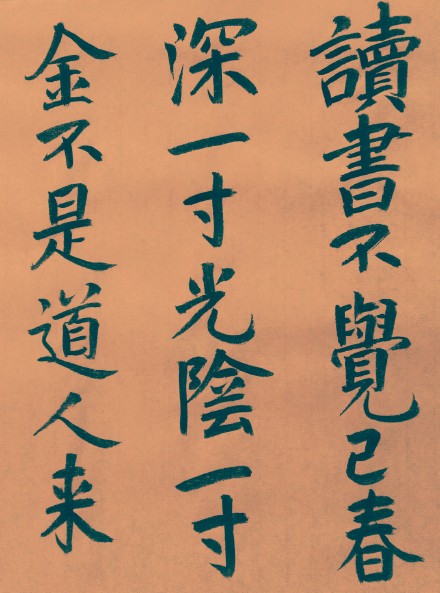 讀書不覺已春
深一寸光陰一寸
金不是道人来